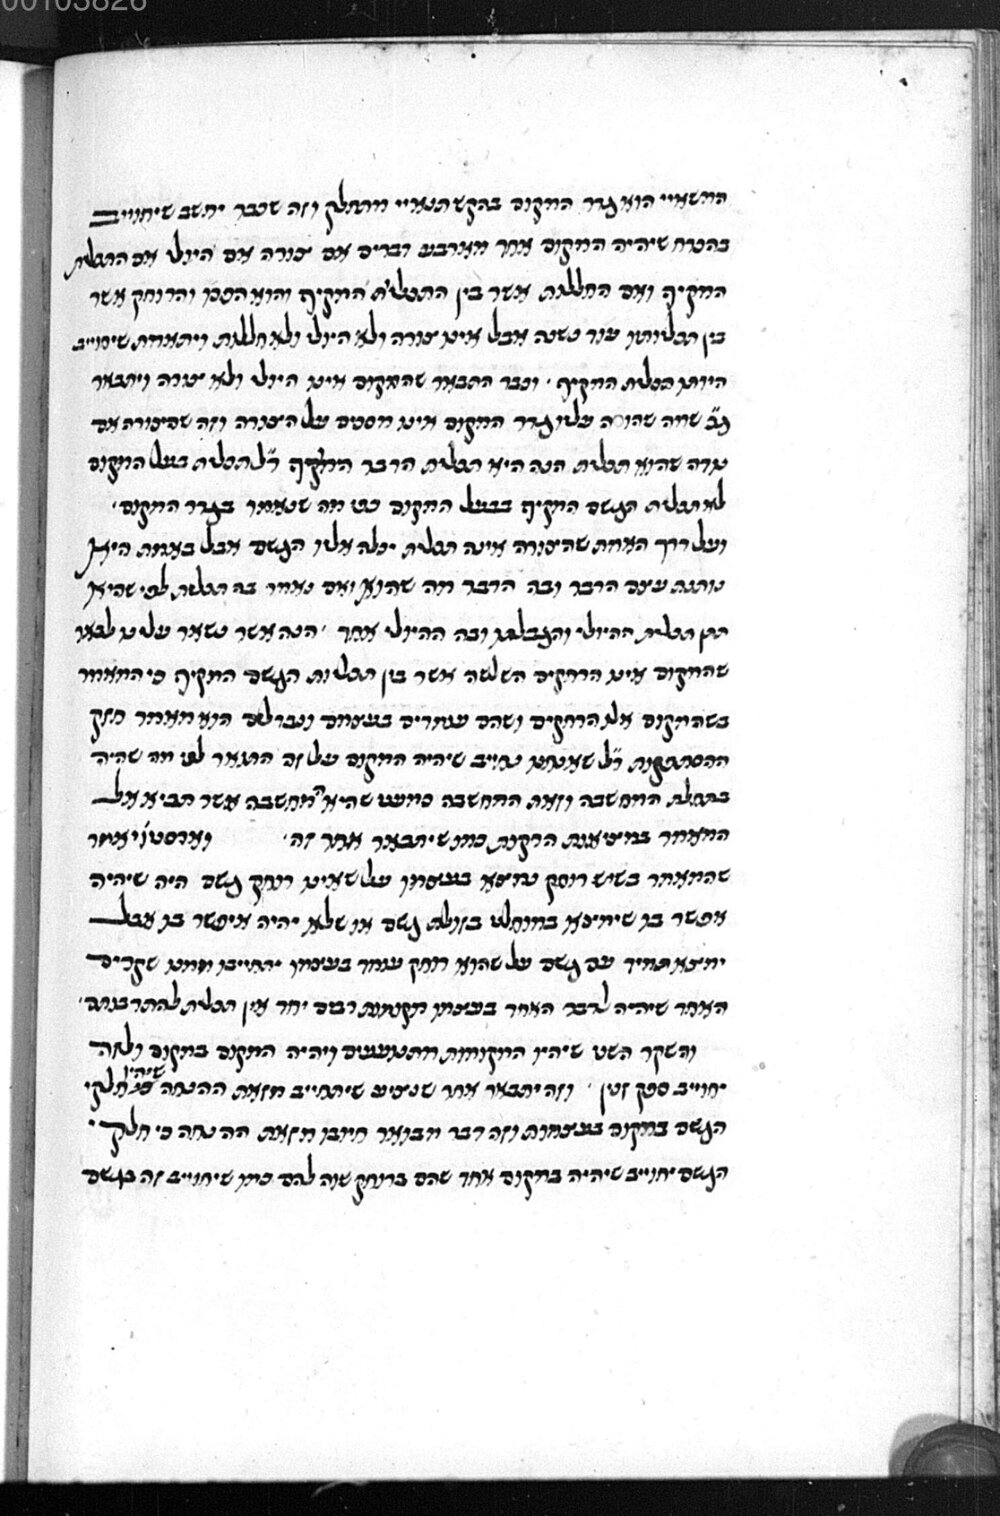 00103826
המשאיי הוא גדר המקום בהקש תנאיי מתחלק וזה שכבר יחשב שיחוייב
בהכרח שיהיה המקום אחד מארבע דברים אם צורה אם היולי אם התכלית
המקיף ואם החללות אשר בין התכלית המקיף והוא הסכן והרוחק אשר
בין תכליותיו עוד נשנה אבל אינו צורה ולא היולי ולא חללות ויתאמת שיחוייב
היותו תכלית המקיף ׳ וכבר התבאר שהמקום אינו היולי ולא צורה ויתבאר
ג״כ שמה שהורה עליו גדר המקום אינו מסכים על הצורה וזה שהצורה אם
נודה שהיא תכלית הנה היא תכלית הדבר המוקף ר״ל תכלית בעל המקום
לא תכלית הגשם המקיף בבעל המקום כפי מה שנאמר בגדר המקום ׳
ועל דרך האמת שהצורה אינה תכלית יכלה אליו הגשם אבל באמת היא
נותנת עצם הדבר ובה הדבר מה שהוא ואם נאמר בה תכלית לפי שהיא
תתן תכלית ההיולי והגבלתו ובה ההיולי אחד ׳ הנה אשר נשאר עלינו לבאר
שהמקום אינו הרחקים השלשה אשר בין תכליות הגשם המקיף כי המאמר
בשהמקום אלו הרחקים ושהם עומדים בעצמם ונבדלים הוא מאמר חזק
ההסתפקות ר״ל שאנחנו נחייב שיהיה המקום על זה התואר לפי מה שהיה
בתחלת המחשבה וזאת המחשבה כמעט שהיא המחשבה אשר תביא אל
המאמר במציאות הרקות כמו שיתבאר אחר זה ׳ וארסטו׳ יאמר
שהמאמר בשיש רוחק נמצא בעצמו על שאינו רוחק גשם היה שיהיה
אפשר בו שימצא במוחלט בזולת גשם או שלא יהיה איפשר בו אבל
ימצא תמיד עם גשם על שהוא רוחק עומד בעצמו יתחייבו ממנו שקרים
האחד שיהיה לדבר האחד בעצמו מקומות רבים יחד אין תכלית להתרבותם ׳
והשקר השני שיהיו המקומות מתנועעים ויהיה המקום במקום ולזה
יחוייב ספק זנין ׳ וזה יתבאר אחר שנשים שיתחייב מזאת ההנחה שיהיו כל חלקי
הגשם במקום בעצמות וזה דבר מבואר חיובו מזאת ההנחה כי חלקי
הגשם יחוייב שיהיה במקום אחד שהם ברוחק שוה להם כמו שיחוייב זה בגשם